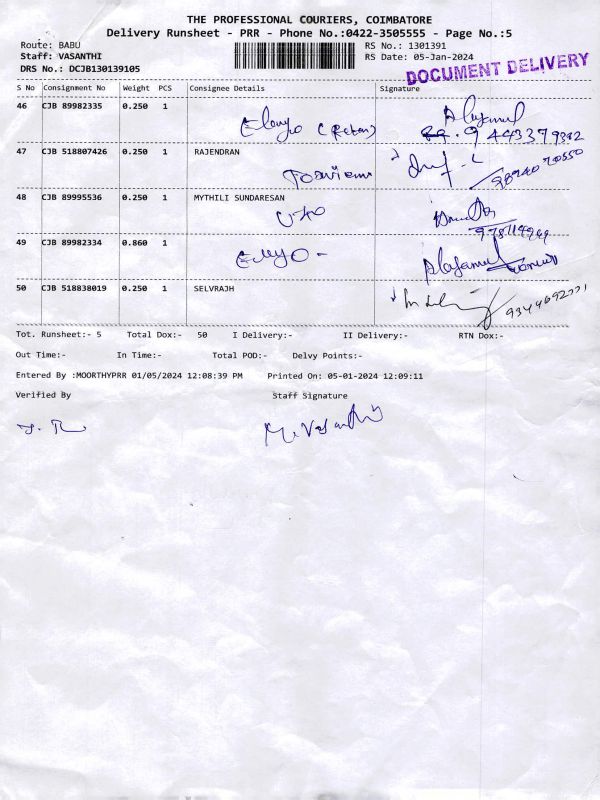 THE PROFESSIONAL COURIERS, COIMBATORE
Delivery Runsheet - PRR - Phone No.:0422-3505555 - Page No.:5
Route: BABU RS No.: 1301391
Staff: VASANTHI RS Date: 05-Jan-2024
DRS No.: DCJB130139105
DOCUMENT DELIVERY
S No Consignment No Weight PCS Consignee Details Signature
46 CJB 89982335 0.250 1
47 CJB 518807426 0.250 1 RAJENDRAN
48 CJB 89995536 0.250 1 MYTHILI SUNDARESAN
49 CJB 89982334 0.860 1
50 CJB 518838019 0.250 1 SELVRAJH
Tot. Runsheet:- 5 Total Dox:- 50 I Delivery:- II Delivery:- RTN Dox:-
Out Time:- In Time:- Total POD:- Delvy Points:-
Entered By :MOORTHYPRR 01/05/2024 12:08:39 PM Printed On: 05-01-2024 12:09:11
Verified By Staff Signature
M. Vasanthi